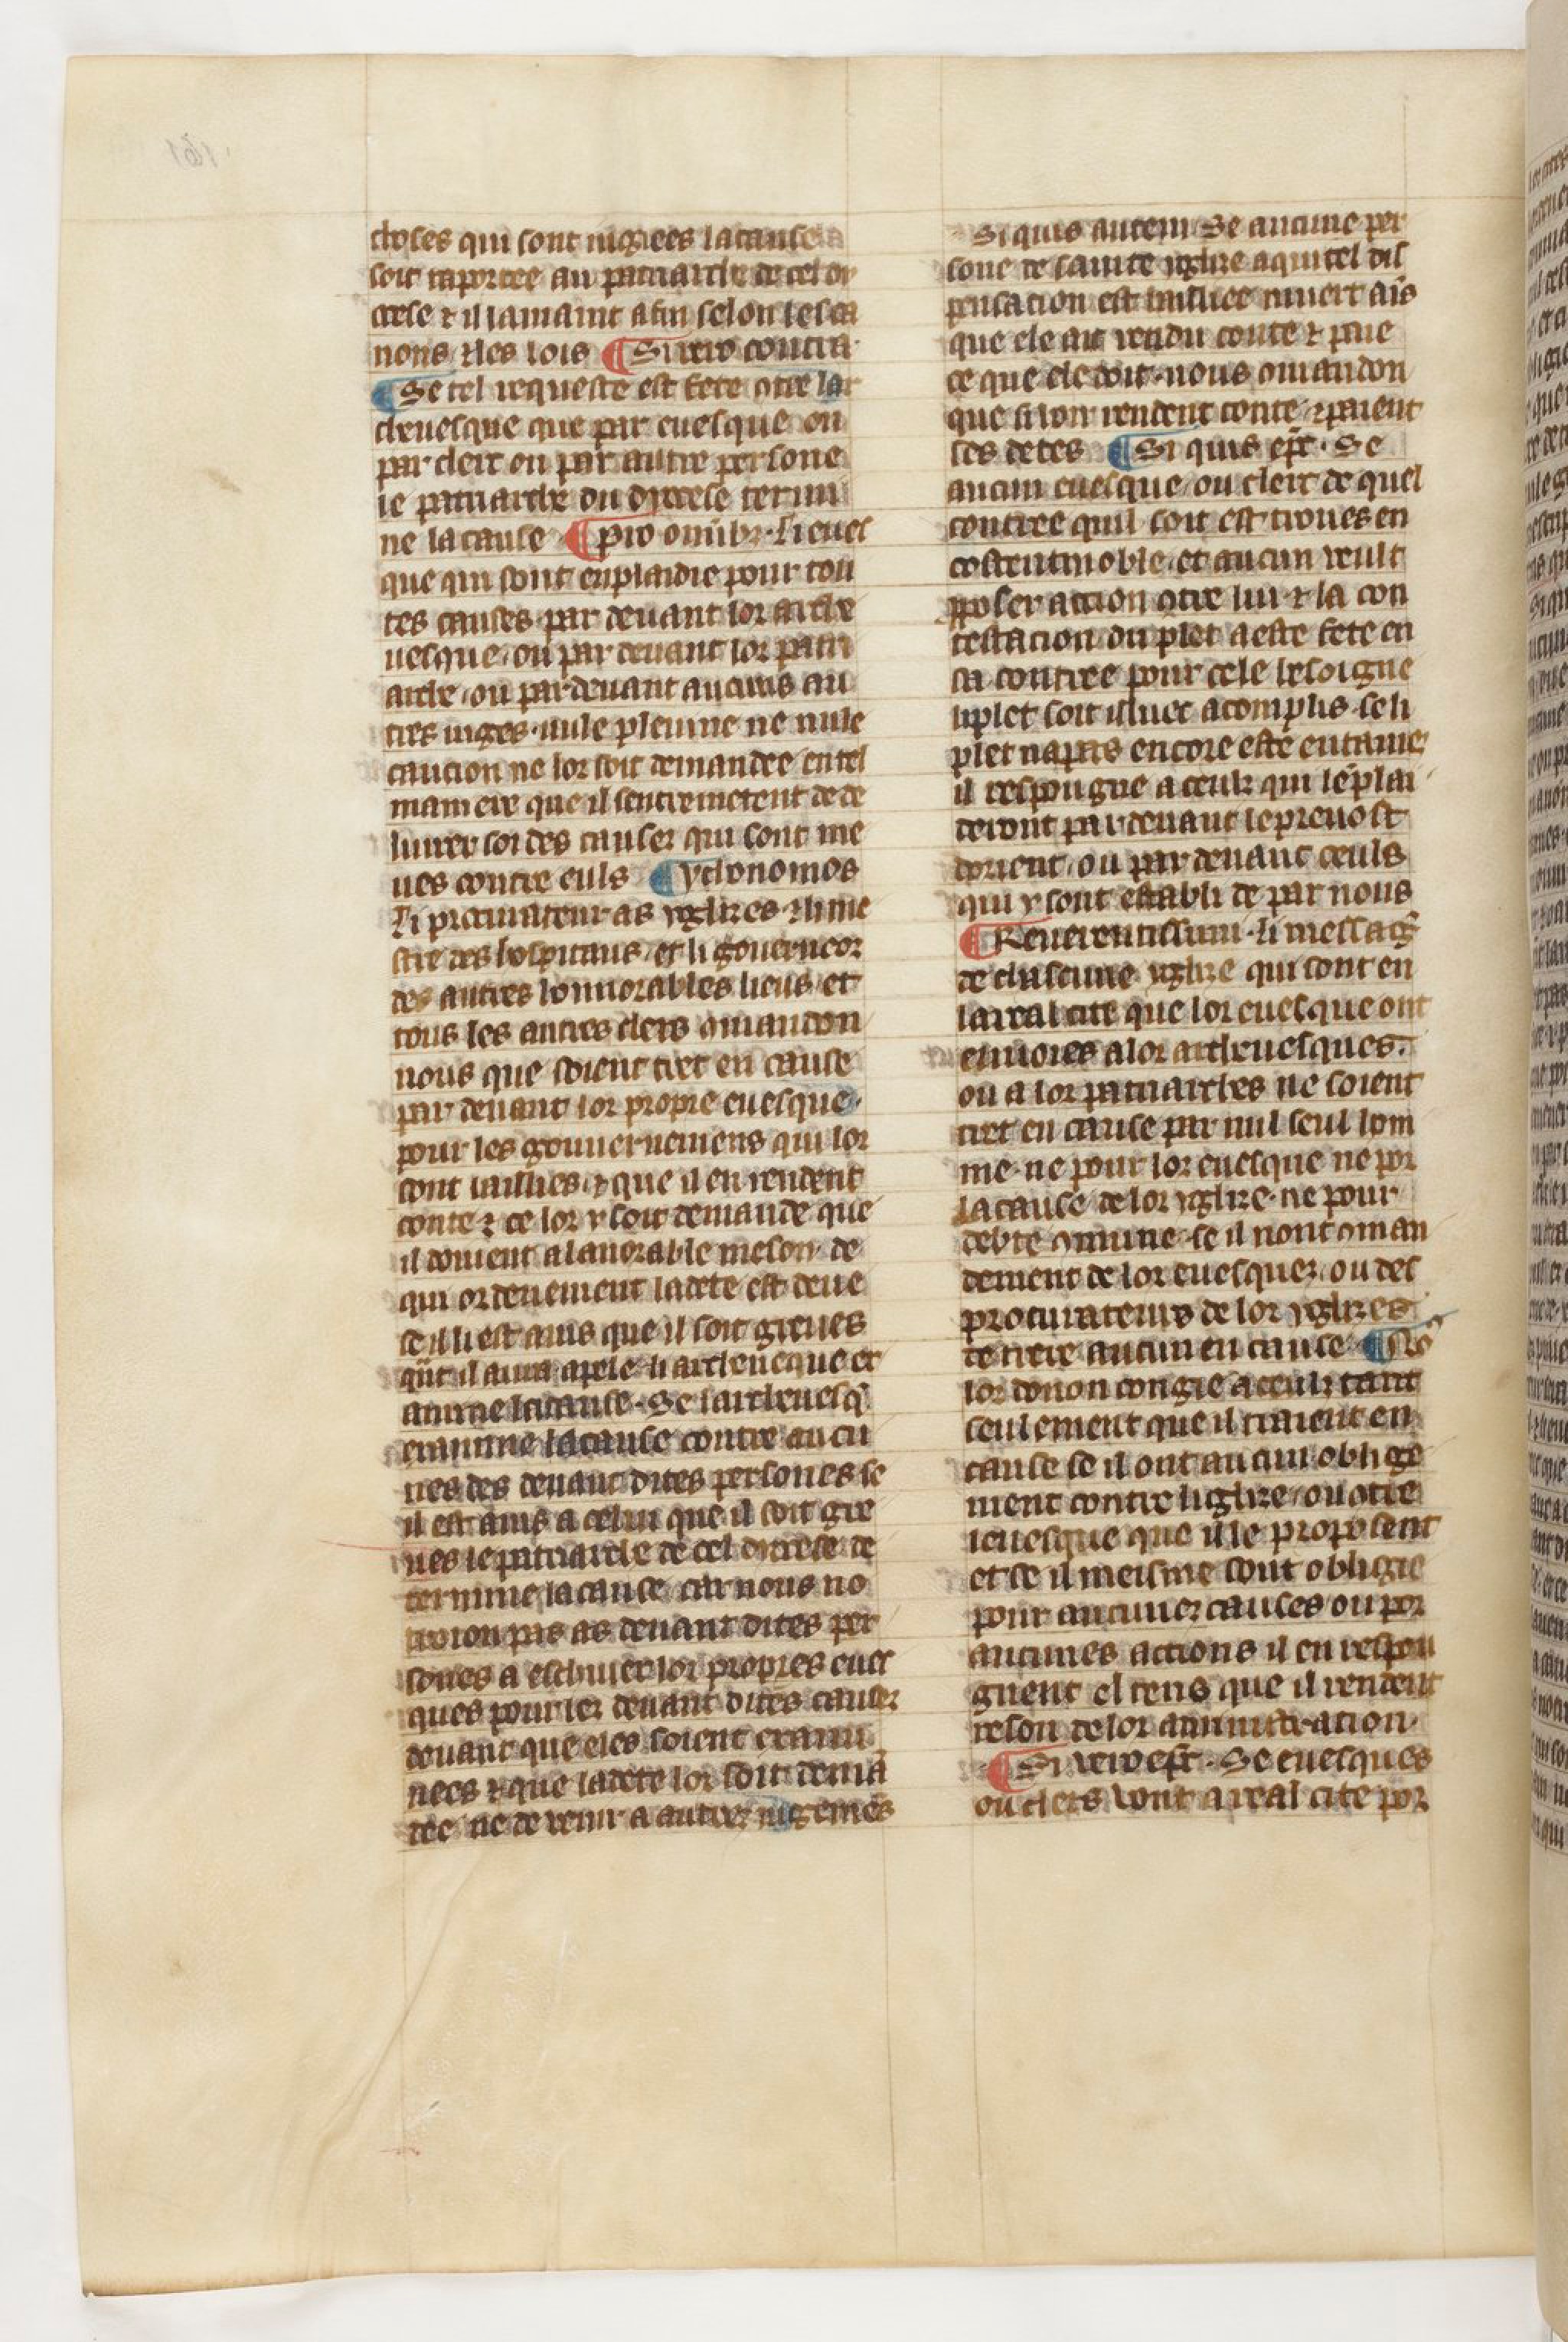 choses qui sont iugiees la cause
soit raportee au patriarche de cel dy
ocese ⁊ il lamaint a fin selon les ca
nons ⁊ les lois ¶ Si vero contra
¶ Se tel requeste est fete ɔtre lar
cheuesque que par euesque ou
par clerc ou par autre persone
le patriarche du dyocese termi
ne la cause ¶ Pro omibꝫ · Li eues
que qui sont enplaidie pour tou
tes causes par deuant lor arche
uesque ou par deuant lor patri
arche ou par deuant aucuns au
tres iuges · nule pleuine ne nule
caucion ne lor soit demandee en tel
maniere que il sentremetent de de
liurer soi des causes qui sont me
ues contre euls ¶ Ychonomos
Li procurateur as yglises ⁊ li me
stre des hospitaus et li gouerneor
des autres honnorables lieus et
tous les autres clers ɔmandon
nous que soient tret en cause
par deuant lor propre euesque ·
pour les gouuernemens qui lor
sont bailliés ⁊ que il en rendent
conte ⁊ ce lor y soit demande que
il doiuent a lanorable meson de
qui ordenement la dete est deue
se il li est auis que il soit greues
qnt il aura apele li archeueque ex
amine la cause · Se larcheuesq̃
examine la cause contre aucu
nes des deuant dites persones se
il est auis a celui que il soit gre
ues le patriarche de cel dyocese de
termine la cause car nous no
troion pas as deuant dites per
sones a eschiuer lor propres eues
ques pour les deuant dites causes
deuant que eles soient exami
nees ⁊ que la dete lor soit demã
dee ne de venir a autres iugemẽs
Si quis autem Se aucune per
sone de sainte yglise a qui tel dis
pensacion est muert ãis
que ele ait rendu conte ⁊ paie
ce que ele doit · nous ɔmandon
que si oir rendent conte ⁊ paient
les detes ¶ Si quis ep̃c · Se
aucun euesque ou clerc de quel
contree quil soit est troues en
costentinoble et aucun veult
pposer accion ɔtre lui ⁊ la con
testacion du plet a este fete en
sa contree pour cele besoigne
li plet soit iluec acomplis · se li
plet na pas encore este entame
il respongne a ceulz qui le plai
deront par deuant le preuost
dorient ou par deuant ceuls
qui y sont establi de par nous
¶ Reuerentissimi · Li messag̃
de chascune yglise qui sont en
la real cite que lor euesque ont
enuoies a lor archeuesques ·
ou a lor patriarches ne soient
tret en cause par nul seul hom
me · ne pour lor euesque ne por
la cause de lor yglise · ne pour
debte ɔmune · se il nont ɔman
dement de lor euesques ou des
procurateurs de lor yglises
de trere aucun en cause ¶ No
lor donon congie a ceulz tant
seulement que il traient en
cause se il ont aucun oblige
ment contre liglise ou ɔtre
leuesque que il le proposent
et se il meisme sont obligie
pour aucunes causes ou por
aucunes actions il en respon
gnent el tens que il rendent
reson de lor aministracion ·
¶ Si vero ep̃c · Se euesques
ou clers vont a real cite por